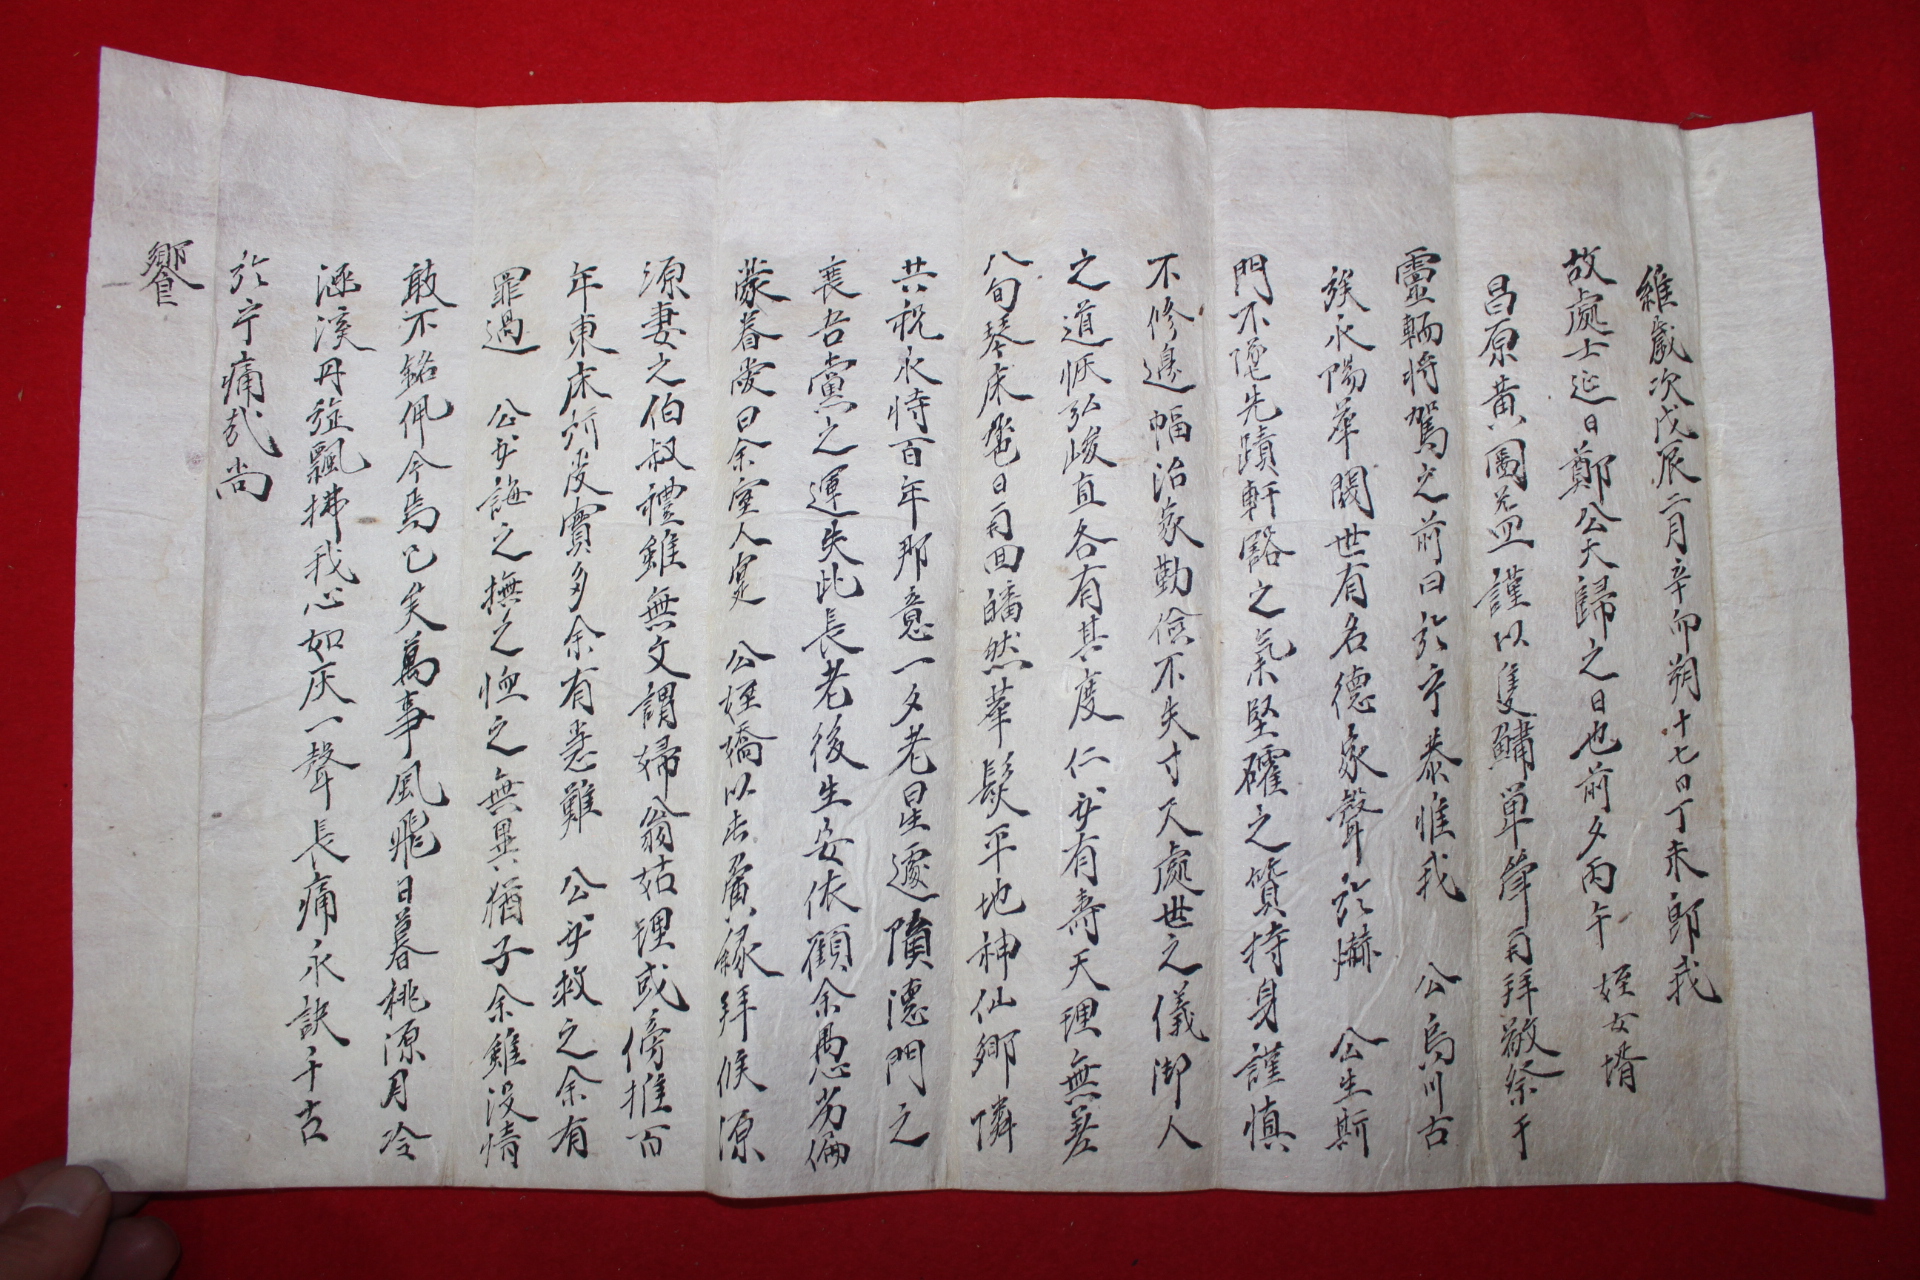 維歲次戊辰二月辛卯朔十七日丁未郎我
故處士延日鄭公大歸之日也前夕丙午 姪女壻
昌原黃圖益謹以隻鷄單觶再拜敬祭于
靈輀將駕之前曰於乎恭惟我 公烏川古
族永陽華閥世有名德家聲於爀 公生斯
門不墜先蹟軒豁之氣堅確之質持身謹愼
不修邊幅治家勤儉不失寸尺處世之儀御人
之道恢弘峻直各有其度仁必有壽天理無差
八旬琴床巹日再回皤然華髮平地神仙鄕隣
共祝永恃百年那意一夕老星遽隕德門之
喪吾黨之運失此長老後生安依顧余愚劣偏
蒙眷愛曰余室人寔 公姪嬌以古屬緣拜候源
源妻之伯叔禮雖無文謂婦翁姑理或傍推百
年東床所受實多余有患難 公必救之余有
罪過 公必誨之撫之恤之無異猶子余雖沒情
敢不銘佩今焉已矣萬事風飛日暮桃源月冷
涵溪丹旌飄拂我心如灰一聲長痛永訣千古
於乎痛哉尚
饗